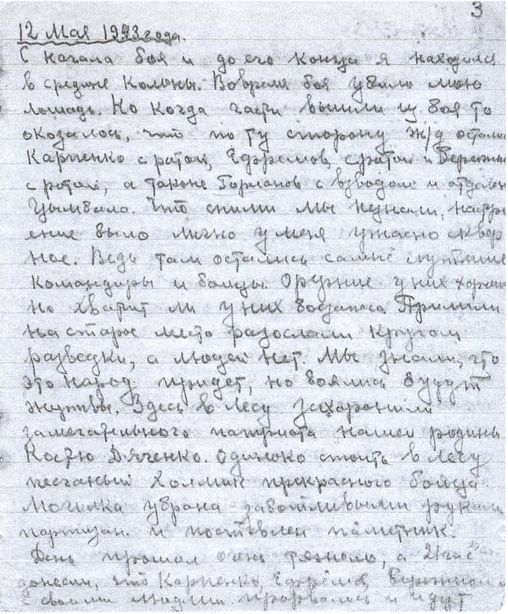 3
12 Мая 1943 года.
С начала боя и до его конца я находился
в средине Колоны. Вовремя боя убило мою
лошадь. Но когда части вышли из боя то
оказалось, что по ту сторону ж/д остались
Карпенко с ротой, Ефремов, с ротой и
с ротой, а также Гарманов с взводом и отделен
Цымбала. Что сними мы незнали, настро
ение было лично у меня ужасно сквер
ное. Ведь там остались самые лучшие
командиры и бойцы. Оружие у них хорошее
но хватит ли у них боезапаса Пришли
на старое место разослали кругом
разведки, а людей нет. Мы знали, что
это народ придет, но боялись будут
жертвы. Здесь в лесу захоронили
замечательного патриота нашей родины
Костю Дяченко. Одиноко стоит в лесу
песчаный Холмик прекрасного бойца
Могилка убрана заботливыми руками
партизан. и поставлен памятник.
День прошел очень тяжело, а 21 час
донесли, что Карпенко, Ефремов
с своими людьми прорвались и идут